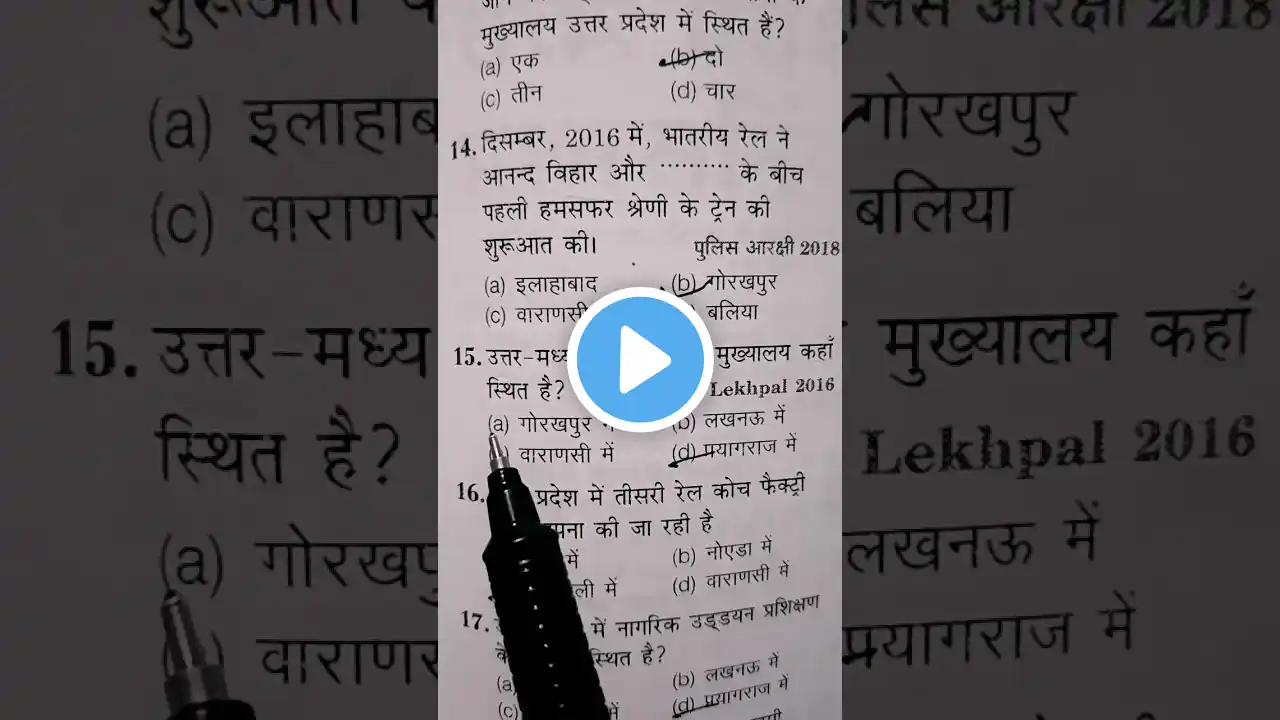 मुख्यालय उत्तर प्रदेश में स्थित हैं?
(a) एक (b) दो
(c) तीन (d) चार
14. दिसम्बर, 2016 में, भातरीय रेल ने
आनन्द विहार और .......... के बीच
पहली हमसफर श्रेणी के ट्रेन की
शुरूआत की। पुलिस आरक्षी 2018
(a) इलाहाबाद (b) गोरखपुर
(c) वाराणसी बलिया
15. उत्तर-मध्य मुख्यालय कहाँ
स्थित है? Lekhpal 2016
(a) गोरखपुर (b) लखनऊ में
वाराणसी में (d) प्रयागराज में
16. प्रदेश में तीसरी रेल कोच फैक्ट्री
की जा रही है
में (b) नोएडा में
में (d) वाराणसी में
17. में नागरिक उड्डयन प्रशिक्षण
स्थित है?
(a) (b) लखनऊ में
(c) में (d) प्रयागराज में